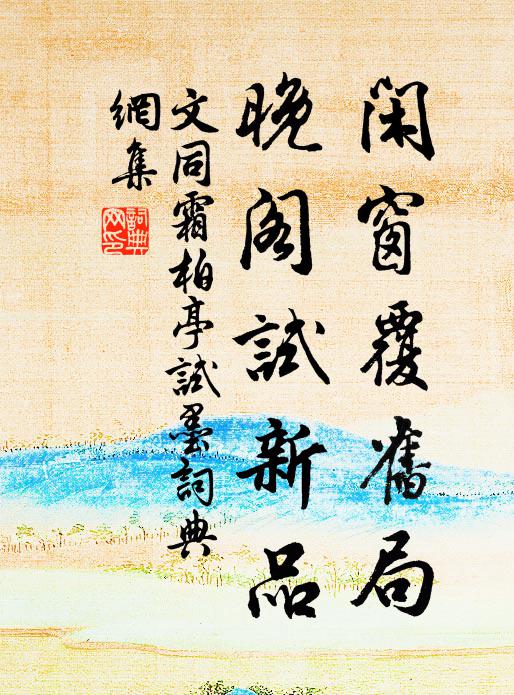 閑窗覆舊局
晚閣試新品
文同霜柏亭試墨詞典
網集
詞典網印